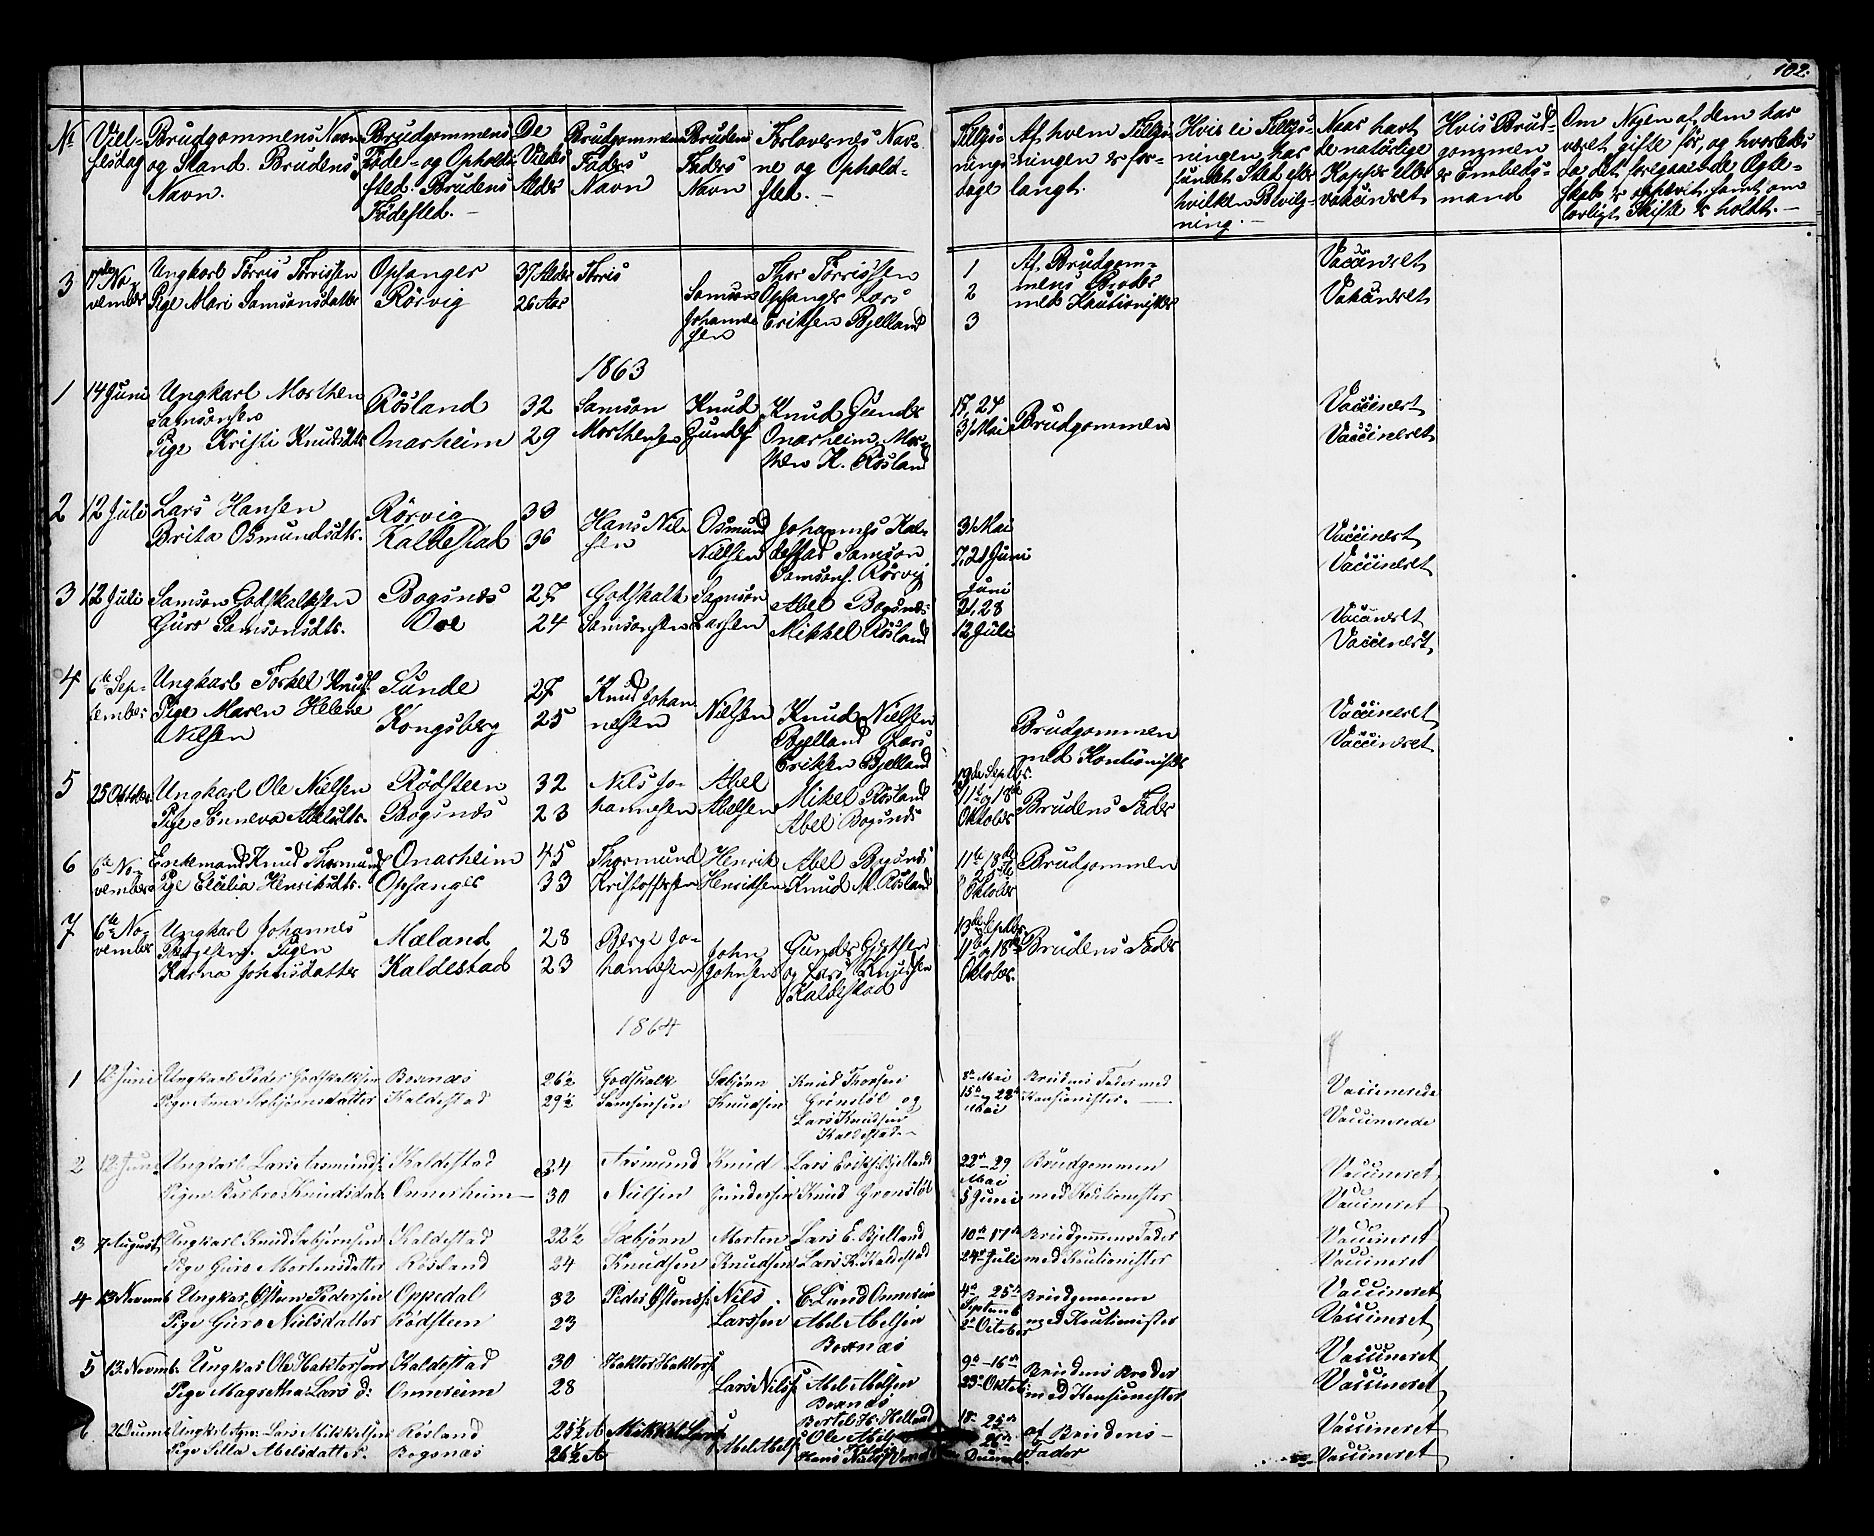 102.
No Viel-
felsdag
Brudgommens Navn
og Stand. Brudens
Navn.
Brudgommens
Føde- og Opholds
sted. Brudens
Fødested.
De
Viedes
Alder
Brudgommens
Faders
Navn
Brudens
Faders
Navn
Forlovernes Nav-
ne og Ophold-
sted.
Tillys-
nings
dage
Af hvem Tillys-
ningen er for-
langt.
Hvis ei Tillys-
ningen har
fundet Sted efter
hvilken Bevilg-
ning.
Naar havt
de naturlige
Kopper eller
vakcineret
Hvis Brud-
gommen
er Embeds-
mand
Om Nogen af dem har
været gifte før, og hvorledes
da det foregaaende Ægte-
skab er ophævet, samt om
lovligt Skifte er holdt.
3 17de No-
vember
Ungkarl Tørris Tørrissen
Pige Mari Samsonsdatter
Opsanger
Rörvig
37 Alder
26 Aar
Tørris
Samson
Johannes
sen
Thor Törrissen
Opsanger Lars
Eriksen Bjelland
1
2
3
Af Brudgom-
mens Broder
med Kautionister
Vaccineret
Vakcineret
1863
1 14 Juni
Ungkarl Morthen
Samsonsen
Pige Kristi Knudsdtr
Rösland
Onarheim
32
29
Samson
Morthensen
Knud
Gunders
Knud Gunder
Onarheim, Mor-
then K. Rösland
17, 24
31 Mai
Brudgommen
Vaccineret
Vaccineret
2 12 Juli
Lars Hansen
Brita Osmundsdtr.
Rörvig
Kaldestad
33
36
Hans Niel-
sen
Osmund
Nielsen
Johannes Kal-
destad Samson
Samsons. Rörvig
31 Mai
7, 21 Juni
Vaccineret
Vaccineret
3 12 Juli
Samson Godskalksen
Guro Samsonsdtr.
Bogsnæs
Ove
27
24
Godskalk
Samsonsen
Samson
Larsen
Abel Bogsnæs
Mikkel Rösland
Juni
21, 28
12 Juli
Vaccineret
Vaccineret
4 6te Sep-
tember
Ungkarl Torkel Knuds.
Pige Maren Helene
Nilsen
Sunde
Kongsberg
27
25
Knud Johan
nesen
Nielsen
Knud Nielsen
Bjelland Lars
Eriksen Bjelland
Brudgommen
med Kautionister
Vaccineret
Vaccineret
5 25 Oktober
Ungkarl Ole Nielsen
Pige Sönneva Abelsdtr.
Rödsteen
Bogsnæs
32
23
Nils Jo-
hannesen
Abel
Abelsen
Mikel Rösland
Abel Bogsnæs
Septbr.
11te og 18de
Oktober
Brudens Fader
6 6te No-
vember
Enkemand Knud Thormund
Pige Cecilia Henriksdtr.
Onarheim
Opsanger
45
33
Thormund
Kristoffersen
Henrik
Henriksen
Abel Bogsnæs
Knud M. Rösland
11te 18de
25de
Oktober
Brudgommen
7 6te No-
vember
Ungkarl Johannes
Bergesen. Pigen
Karna Johnsdatter
Mæland
Kaldestad
28
23
Berge Jo-
hannesen
John
Johnsen
Gunder
og Lars Knudsen
Kaldestad
13de Septbr.
11te og 18de
Oktober.
Brudens Fader
1864
1 12 Juni
Ungkarl Peder Godskalksen
Pige Anna Sæbjørnsdatter
Bosnæs
Kaldestad
26½
29½
Godskalk
Samsonsen
Sæbjørn
Knudsen
Knud Thorsen
Grönslöt og
Lars Knudsen
Kaldestad
8de Mai
15de og 22de
Mai
Brudens Fader med
Kautionister.
Vaccinerede
Vaccinerede
2 12. Juni
Ungkarl Lars Aasmunds.
Pigen Barbro Knudsdat
Kaldestad
Onnerheim
34
30
Aasmund
Nielsen
Knud
Gundersen
Lars Eriks. Bjelland
Knud Grønsløt
22de-29
Mai
5 Juni
Brudgommen
med Kautionister
Vaccineret
Vaccineret
3 7 August
Ungkarl Knud Sæbjørnsen
Pige Guro Mortensdatter
Kaldestad
Røsland
22½
24
Sæbjørn
Knudsen
Morten
Knudsen
Lars E. Bjelland
Lars K. Kaldestad
10de 17de
24de Juli
Brudgommens Fader
med Kautionister
Vaccineret
Vaccineret
4 13. Novemb.
Ungkar. Østen Pedersen
Pige Guro Nielsdatter
Oppedal
Rødsteen
32
23
Peder Østens.
Nils
Larssen
C. Lund Onnereim
Abel Abelsen
Bosnæs
4de 25de
Septemb
2de October
Brudgommen
med Kautionister
Vaccineret
Vaccineret
5 13. Novmb.
Ungkar Ole Haktorsen
Pige Magretha Lars d:
Kaldestad
Onnereim
30
28
Haktor Haktors.
Lars Nilss.
Abel Abelsen
Bosnæs
9de-16de
23de Oktob
Brudens Broder
med Kautionister
Vaccineret
Vaccineret
6
Lars Mikkelsen
Pige Silla Abelsdatter.
Røsland
Bogsnæs
25½ A
26½ A
Mikkel Lars.
Abel Abels.
Bertel H. Helland
Ole Abels.
18de 25de
af Brudens
Fader
Vaccineret
Vaccineret